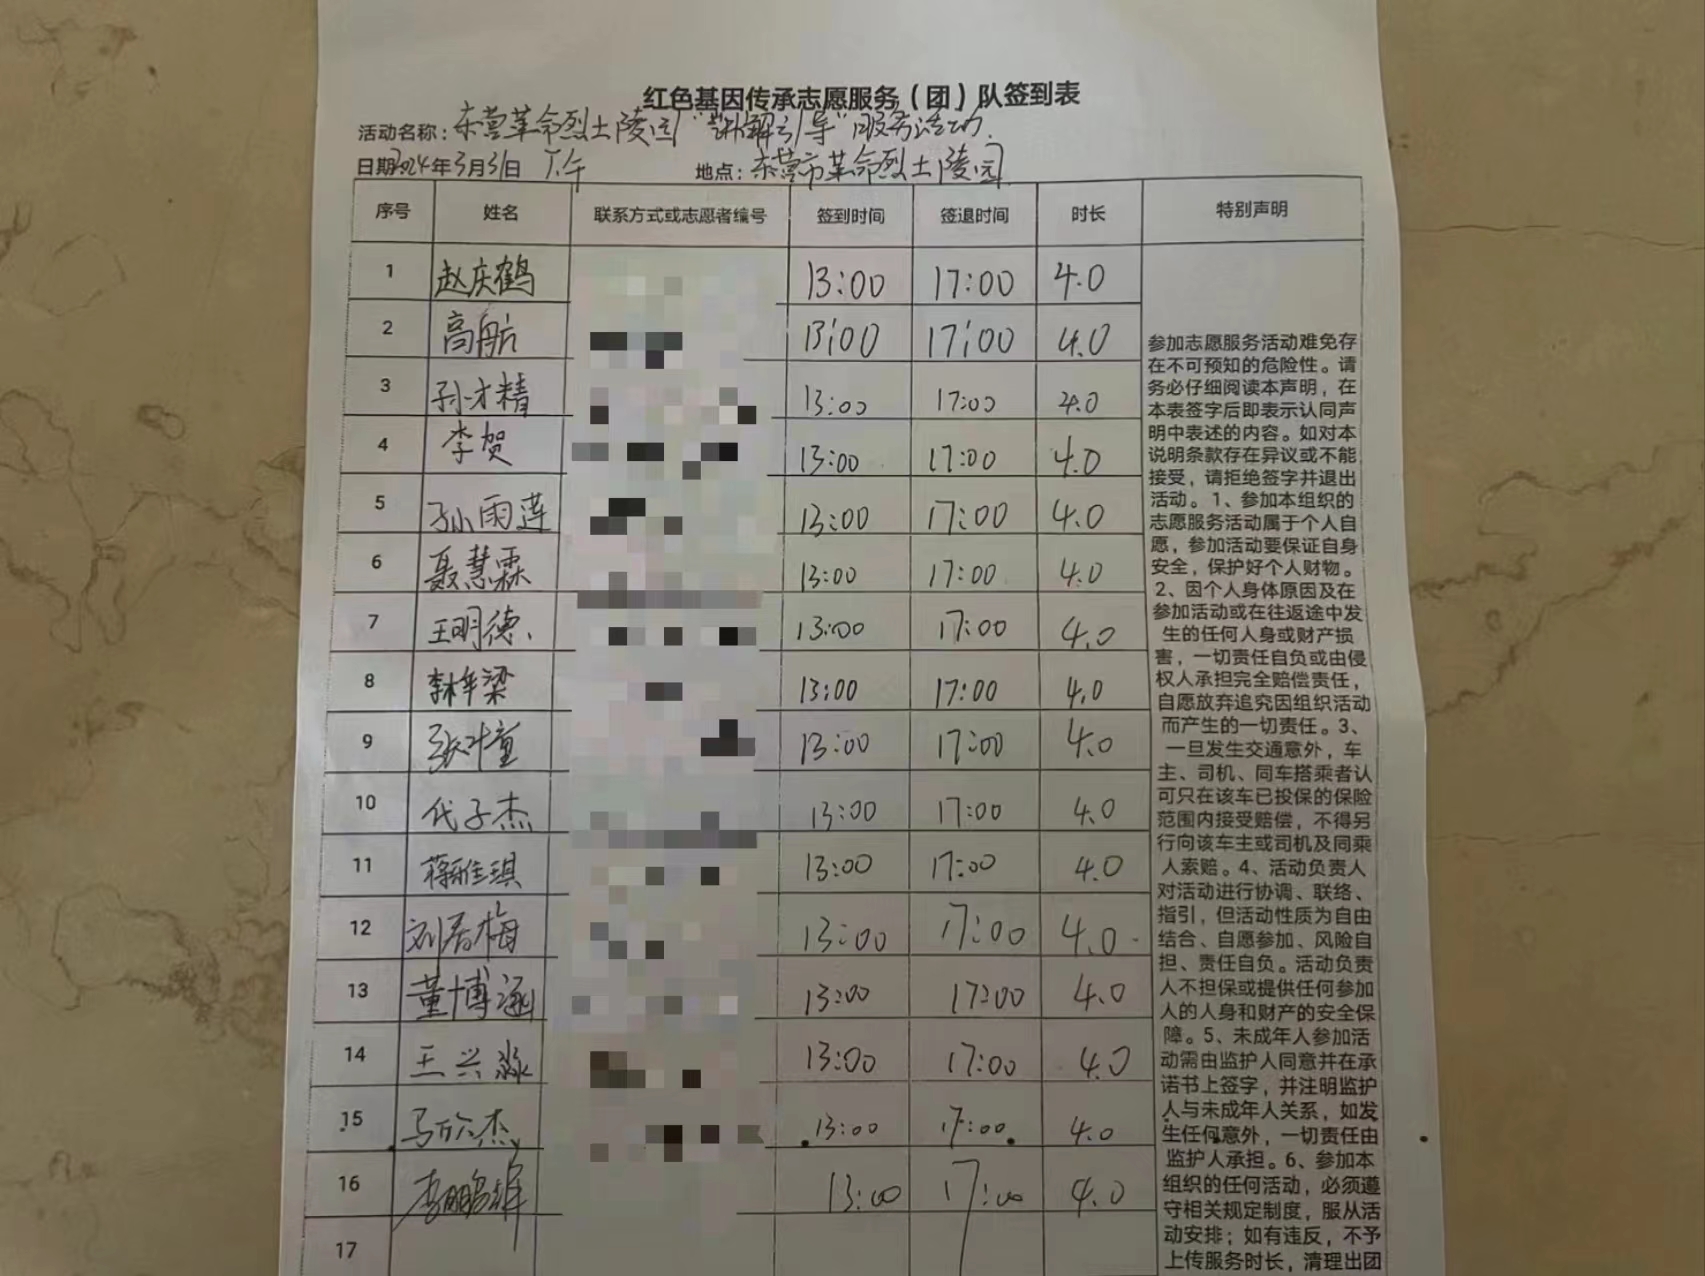 红色基因传承志愿服务（团）队签到表
活动名称：东营革命烈士陵园“讲解引导”服务活动.
日期2024年3月31日 下午 地点：东营市革命烈士陵园
序号 姓名 联系方式或志愿者编号 签到时间 签退时间 时长 特别声明
1 赵庆鹤 13:00 17:00 4.0
2 高航 13:00 17:00 4.0
3 孙才精 13:00 17:00 4.0
4 李贺 13:00 17:00 4.0
5 孙雨莲 13:00 17:00 4.0
6 聂慧霖 13:00 17:00 4.0
7 王明德 13:00 17:00 4.0
8 13:00 17:00 4.0
9 张叶童 13:00 17:00 4.0
10 代子杰 13:00 17:00 4.0
11 蒋雅琪 13:00 17:00 4.0
12 刘春梅 13:00 17:00 4.0
13 董博涵 13:00 17:00 4.0
14 王兴淼 13:00 17:00 4.0
15 马欣杰 13:00 17:00 4.0
16 李鹏辉 13:00 17:00 4.0
17
参加志愿服务活动难免存
在不可预知的危险性。请
务必仔细阅读本声明，在
本表签字后即表示认同声
明中表述的内容。如对本
说明条款存在异议或不能
接受，请拒绝签字并退出
活动。1、参加本组织的
志愿服务活动属于个人自
愿，参加活动要保证自身
安全，保护好个人财物。
2、因个人身体原因及在
参加活动或在往返途中发
生的任何人身或财产损
害，一切责任自负或由侵
权人承担完全赔偿责任，
自愿放弃追究因组织活动
而产生的一切责任。3、
一旦发生交通意外，车
主、司机、同车搭乘者认
可只在该车已投保的保险
范围内接受赔偿，不得另
行向该车主或司机及同乘
人索赔。4、活动负责人
对活动进行协调、联络、
指引，但活动性质为自由
结合、自愿参加、风险自
担、责任自负。活动负责
人不担保或提供任何参加
人的人身和财产的安全保
障。5、未成年人参加活
动需由监护人同意并在承
诺书上签字，并注明监护
人与未成年人关系，如发
生任何意外，一切责任由
监护人承担。6、参加本
组织的任何活动，必须遵
守相关规定制度，服从活
动安排；如有违反，不予
上传服务时长，清理出团